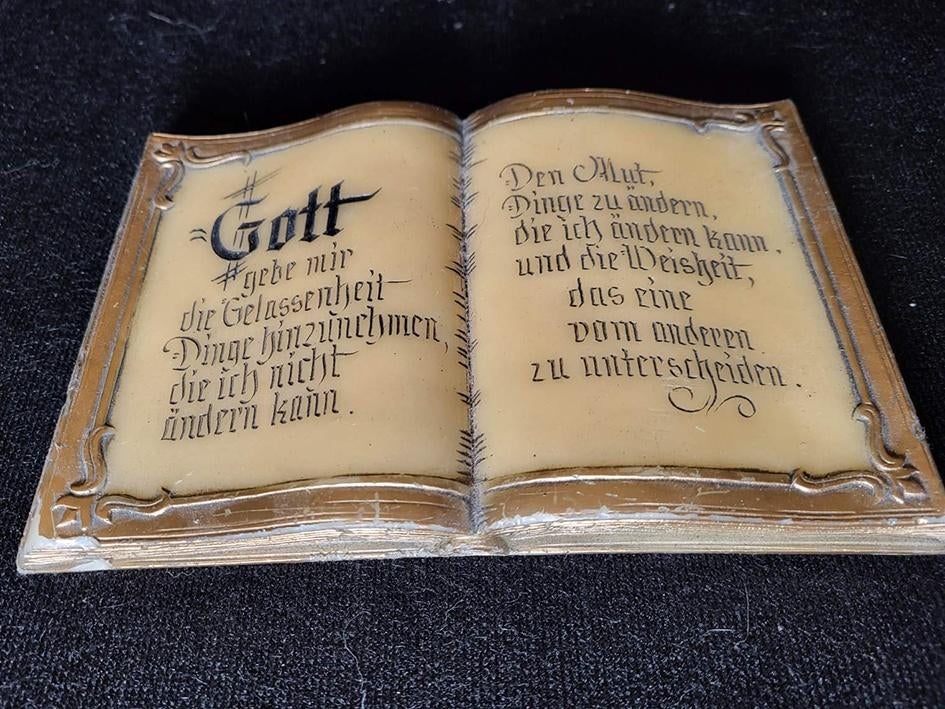 Gott
gebe mir
die Gelassenheit
Dinge hinzunehmen,
die ich nicht
ändern kann.
Den Mut,
Dinge zu ändern,
die ich ändern kann.
und die Weisheit,
das eine
vom anderen
zu unterscheiden.